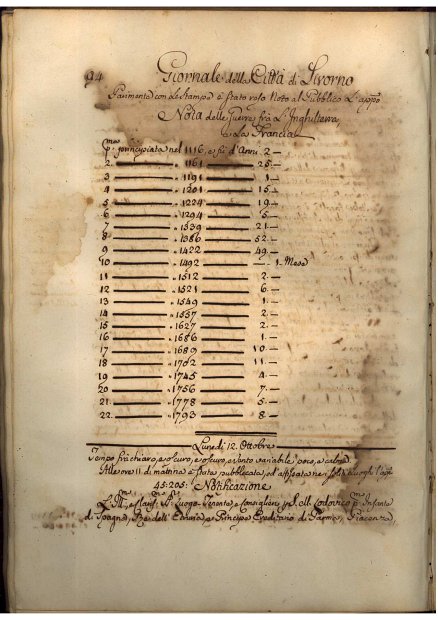 94 Giornale della Città di Livorno
Parimente con Le Stampe è Stato reso Noto al Pubblico L'app.º
Nota delle Guerre frà L'Inghilterra,
e la Francia
p.mo principiata nel 1116, e fù d'Anni 2 —
2. — 1161 — 25. —
3 — 1191 — 1 —
4 — 1201 — 15. —
5 — 1224 — 19. —
6 — 1294 — 5. —
7 — 1339 — 21. —
8 — 1386 — 52. —
9 — 1422 — 49. —
10 — 1492 — 1. Mese
11 — 1512 — 2. —
12 — 1521 — 6. —
13 — 1549 — 1. —
14 — 1557 — 2. —
15 — 1627 — 2. —
16 — 1686 — 1. —
17 — 1689 — 10. —
18 — 1702 — 11. —
19 — 1745 — 4. —
20 — 1756 — 7. —
21 — 1778 — 5. —
22 — 1793 — 8 —
Lunedì 12. Ottobre
Tempo frà chiaro, e oscuro, vento variabile poco, e calma
Alle ore 11 di mattina è stata pubblicata, ed affissata nei soliti Luoghi
45:205: Notificazione
Luogo Tenente, e Consiglieri di S. A. R. Lodovico p.mo Infante
di Spagna, Rè dell'Etruria, e Principe Ereditario di Parma, Piacenza,